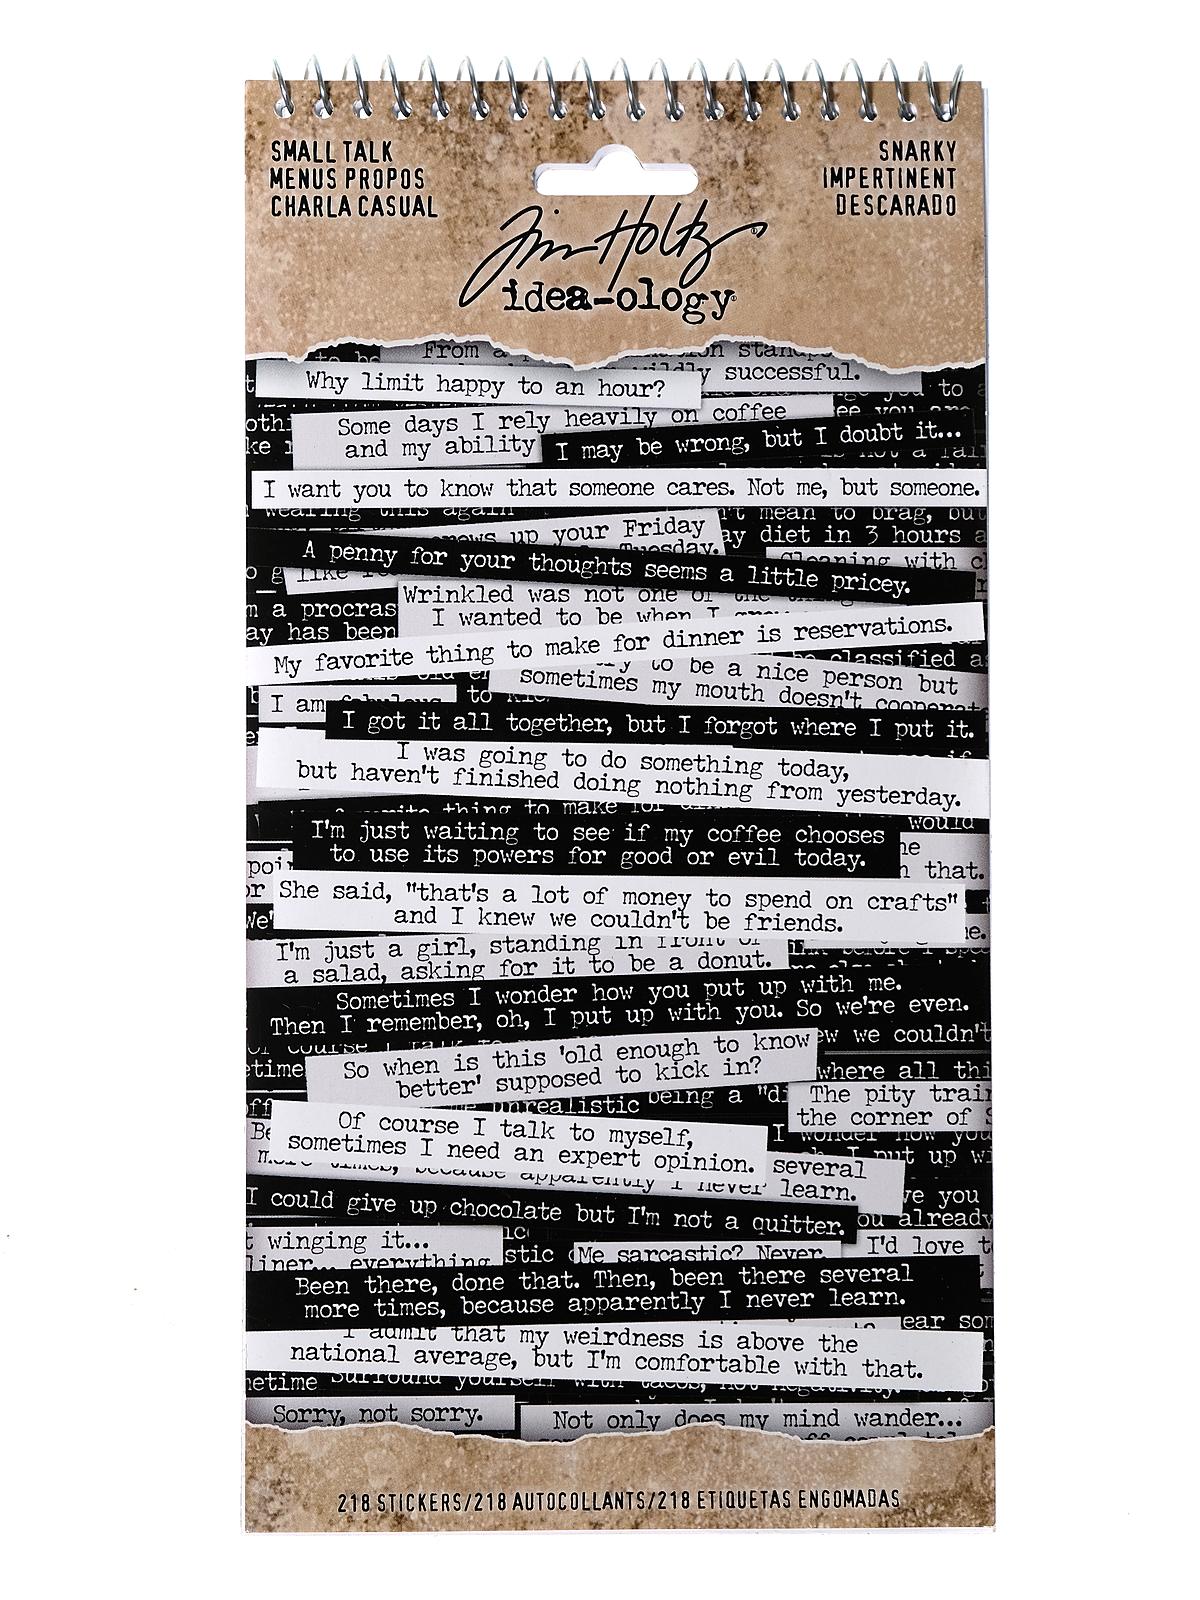 SMALL TALK
MENUS PROPOS
CHARLA CASUAL
SNARKY
IMPERTINENT
DESCARADO
Tim Holtz
idea-ology
From a
successful.
Why limit happy to an hour?
Some days I rely heavily on coffee
and my ability
I may be wrong, but I doubt it...
I want you to know that someone cares. Not me, but someone.
wearing this again
mean to brag, but
up your Friday
diet in 3 hours
Tuesday.
A penny for your thoughts seems a little pricey.
Cleaning with
Wrinkled was not one of the
I wanted to be when I
a procras
has been
My favorite thing to make for dinner is reservations.
classified
to be a nice person but
sometimes my mouth doesn't cooperate
I am fabulous
to
I got it all together, but I forgot where I put it.
I was going to do something today,
but haven't finished doing nothing from yesterday.
thing to make for
would
I'm just waiting to see if my coffee chooses
to use its powers for good or evil today.
that.
She said, "that's a lot of money to spend on crafts"
and I knew we couldn't be friends.
I'm just a girl, standing in front of
a salad, asking for it to be a donut.
Sometimes I wonder how you put up with me.
Then I remember, oh, I put up with you. So we're even.
we couldn't
So when is this 'old enough to know
better' supposed to kick in?
where all
unrealistic
being a
The pity
the corner of
Of course I talk to myself,
sometimes I need an expert opinion.
I wonder how you
I put up
several
more times, because apparently I never learn.
I could give up chocolate but I'm not a quitter.
you
already
winging it...
everything
Me sarcastic? Never.
I'd love
Been there, done that. Then, been there several
more times, because apparently I never learn.
I admit that my weirdness is above the
national average, but I'm comfortable with that.
surround yourself with tacos, not negativity.
Sorry, not sorry.
Not only does my mind wander...
218 STICKERS/218 AUTOCOLLANTS/218 ETIQUETAS ENGOMADAS